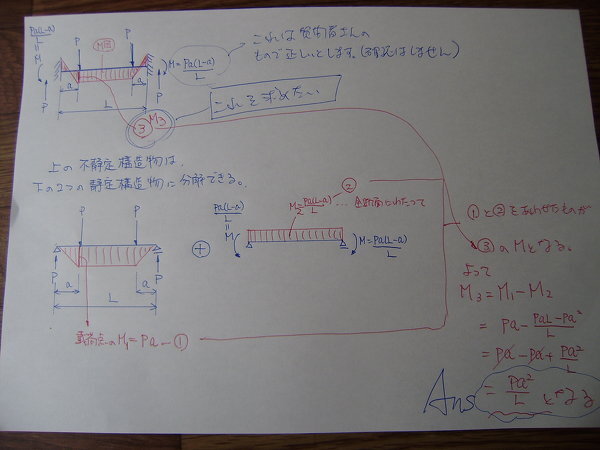 Pa(L-a)
L
=
M
P
P
M図
M = Pa(L-a)
L
これは質問者さんの
もので正しいとします。(確認はしません)
P
a
a
P
L
③ M3
これを求めたい
上の不静定構造物は、
下の2つの静定構造物に分解できる。
P
P
P
a
a
P
L
載荷点のM1 = Pa — ①
+
②
Pa(L-a)
L
=
M
M2 = Pa(L-a)
L
… 全断面にわたって
M = Pa(L-a)
L
①と②をあわせたものが
③のMとなる。
よって
M3 = M1 - M2
= Pa - PaL - Pa²
L
= Pa - Pa + Pa²
L
Ans
= Pa²
L
となる